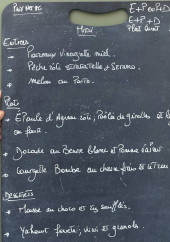 E+P ou P+D
E+P+D
Plat
Menu
Entrées
- Poireaux vinaigrette miel.
- Pêche rôti STRACIATELLA + Serrano.
- Melon au Porto.
Plats
- EPaule d'Agneau rôti, Poêlée de girolles
au four.
- Dorade au Beurre Blanc et Pomme vapeur
- Courgette Bombe au chèvre frais et
DESSERTS
- Mousse au choco et riz soufflés.
- Yahourt fermier, miel et granola.